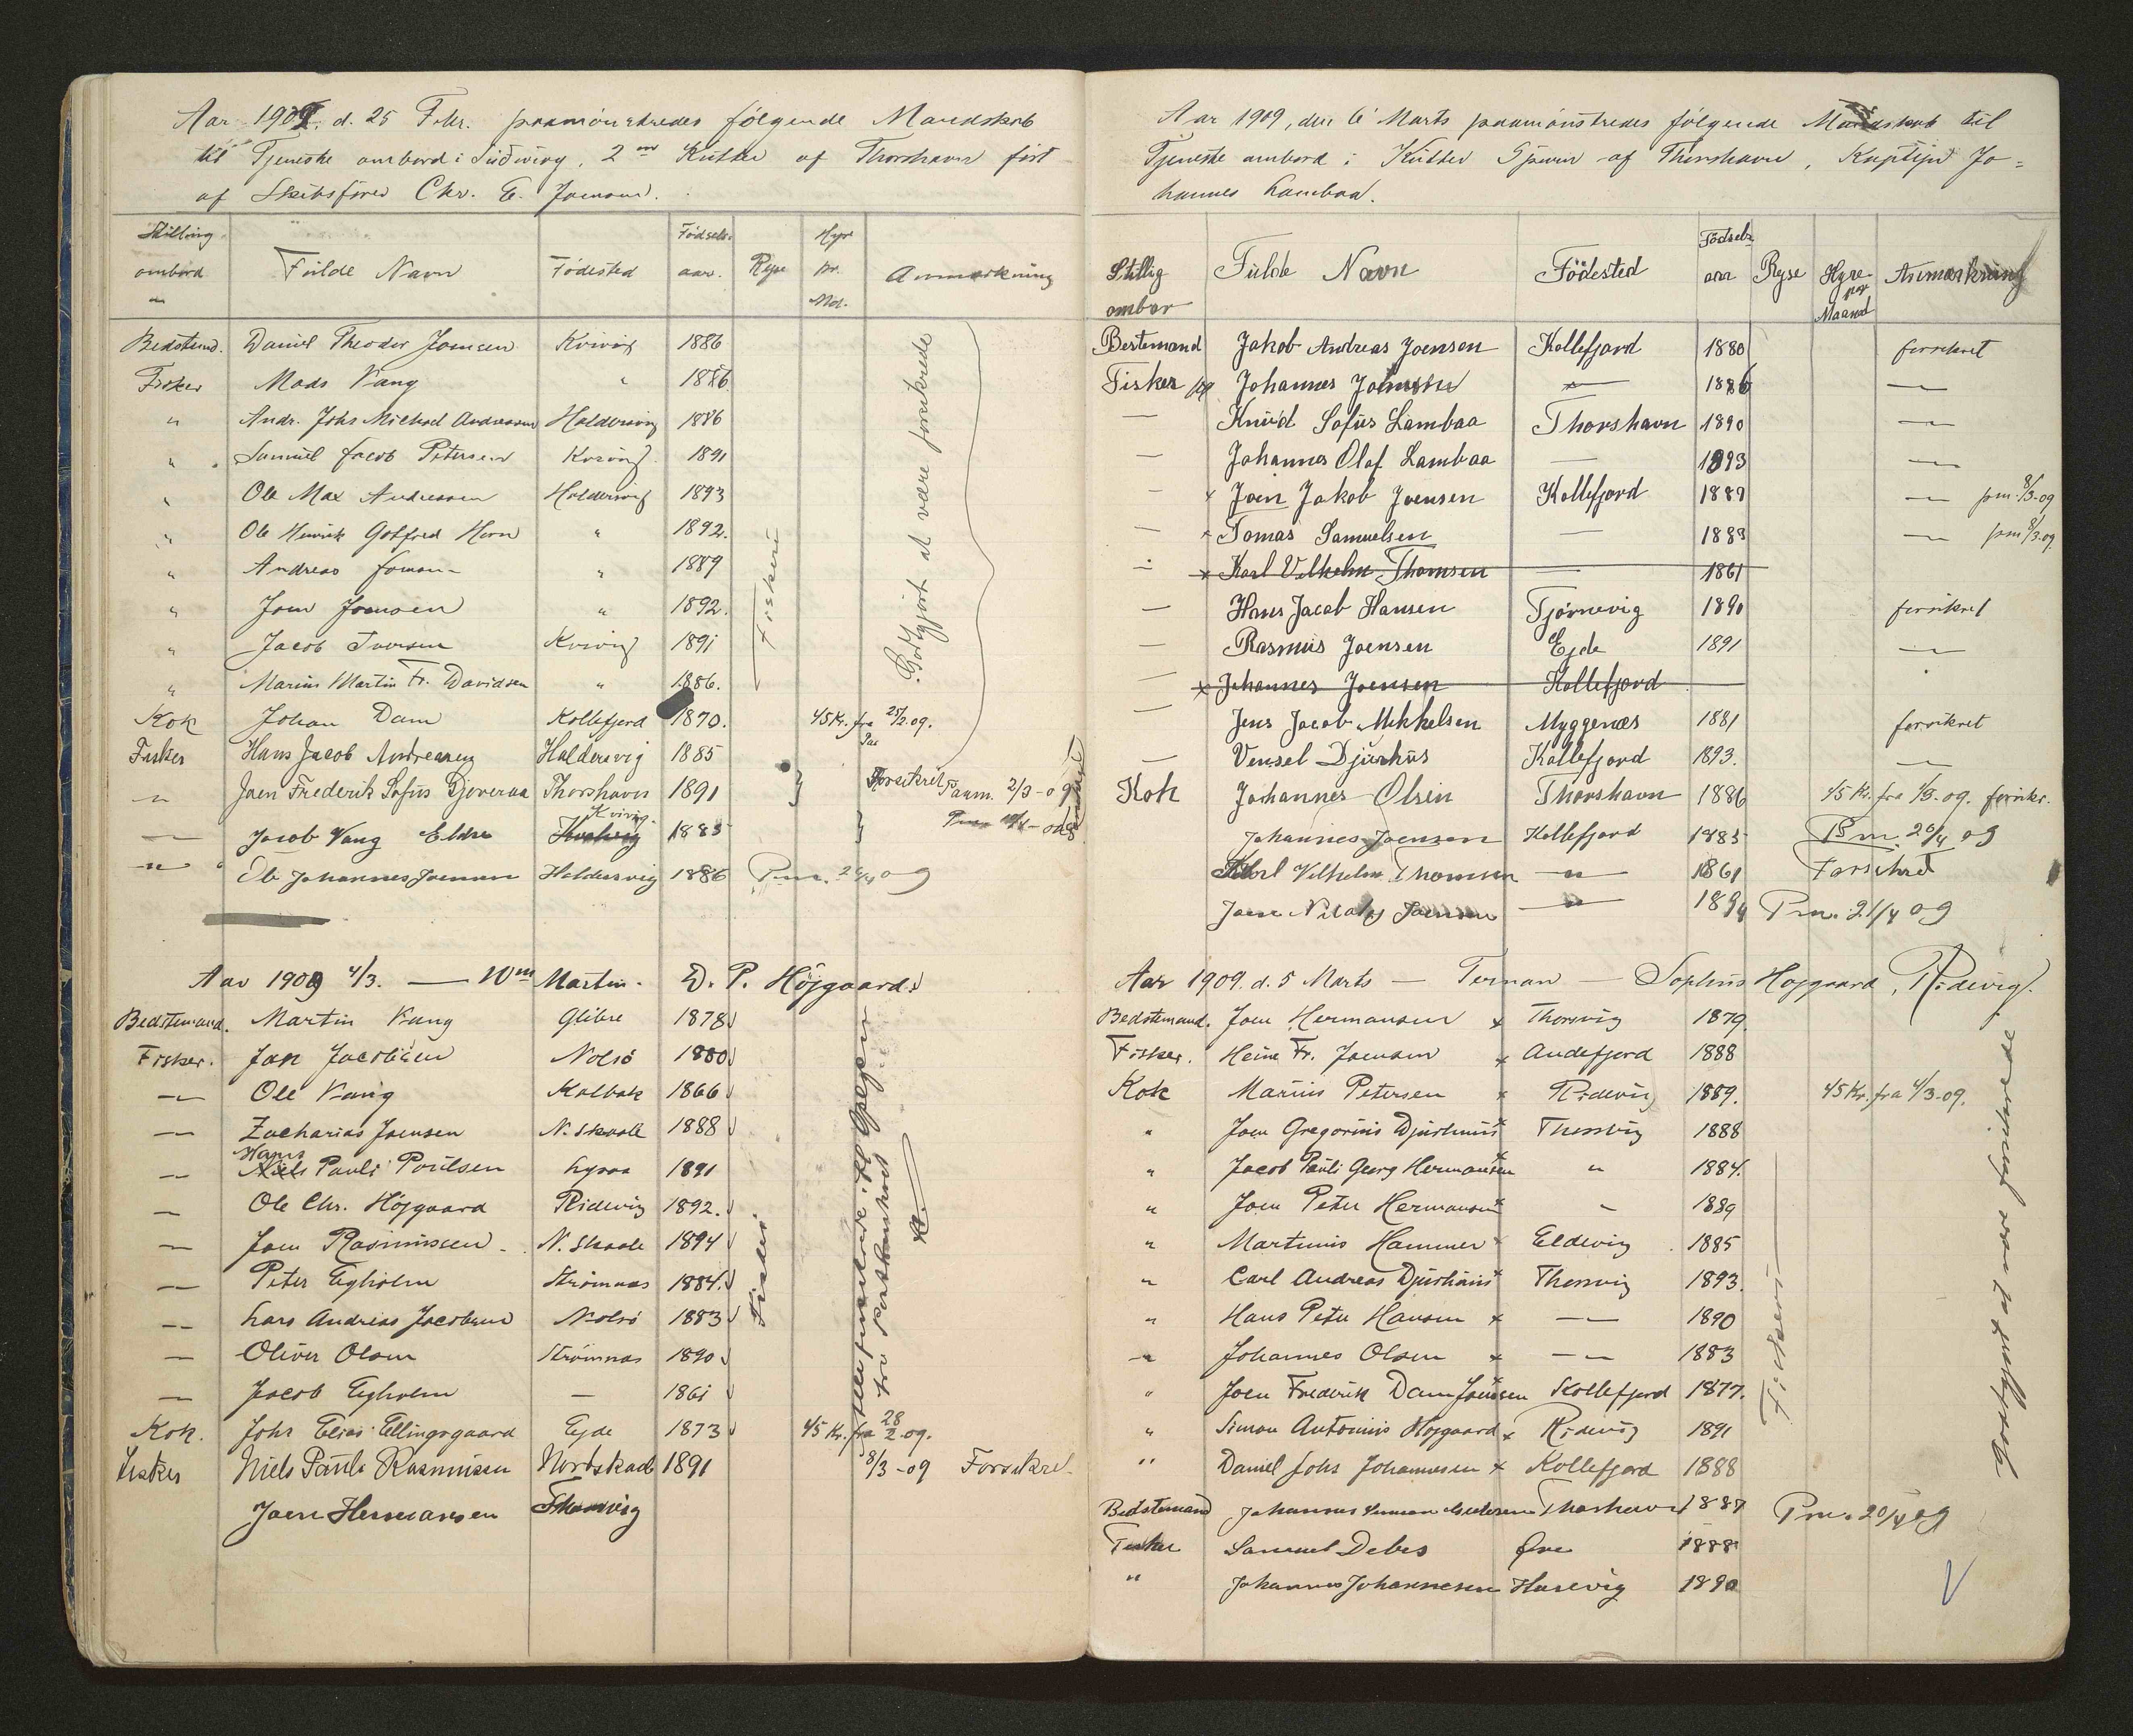 Aar 1909. d. 25 Febr. paamönstredes følgende Mandskab
til Tjeneste ombord i Sudworg, 2 m Kutter af Thorshavn ført
af Skibsfører Chr. E. Joensen.
Stilling ombord Fulde Navn Födested Födsels aar. Rejse Hyre pr. Md. Anmærkning
Bedstemd. Daniel Theodor Joensen Kvivig 1886
Fisker Mads Vang " 1886
" Andr. Johs Michael Andreasen Haldersvig 1886
" Samuel Jacob Petersen Kvivig 1891
" Ole Max Andreasen Haldersvig 1893
" Ole Henrik Gotfred Horn " 1892.
" Andreas Joensen " 1889
" Joen Joensen " 1892.
" Jacob Iversen Kvivig 1891
" Marius Martin Fr. Davidsen " 1886.
Kok Johan Dam Kollefjord 1870. 45 Kr. fra 25/2.09.
Fisker Hans Jacob Andreasen Haldersvig 1885
" Joen Frederik Sofus Djoveraa Thorshavn 1891 Forsikret Paam. 2/3-09
— Jacob Vang Eldre Kvivig 1885
" Ole Johannes Joensen Haldersvig 1886 Pm. 24/4 09
Fiskeri
Godtgjort at være forsikrede
Aar 1909 4/3. — Wm Martin. D. P. Höjgaard.
Bedstemand. Martin Vang Glibre 1878
Fisker. Jan Jacobsen Nolsö 1880
— Ole Vang Kalbak 1866
— Zacharias Joensen N. Skaale 1888
Hans
— Niels Pauli Poulsen Lyraa 1891
— Ole Chr. Höjgaard Ridevig 1892.
— Joen Rasmussen N. Skaale 1894
— Peter Egholm Strömnæs 1884.
— Lars Andreas Jacobsen Nolsö 1883
— Oliver Olsen Strömnæs 1890
— Jacob Egholm — 1861
Kok. Johs Elias Ellingsgaard Ejde 1873 45 Kr. fra 28/2 09.
Fisker Niels Pauli Rasmussen Nordskaale 1891 8/3-09 Forsikret
Joen Hermansen Thorsvig
Fiskeri
Aar 1909, den 6 Marts paamönstredes følgende Mandskab til
Tjeneste ombord i Kutter Spurn af Thorshavn, Kaptejn Jo=
hannes Lambaa.
Stillig ombor Fulde Navn Födested Födsels aar Rejse Hyre per Maaned Anmærkning
Bestemand Jakob Andreas Joensen Kollefjord 1880 forsikret
Fisker Johannes Joensen — 1886 —
— Knud Sofus Lambaa Thorshavn 1890 —
— Johannes Olaf Lambaa — 1893 —
— x Joen Jakob Joensen Kollefjord 1889 — pm. 8/3-09
— x Tomas Samuelsen — 1883 — pm 8/3.09.
— x Karl Vilhelm Thomsen — 1861
— Hans Jacob Hansen Tjörnevig 1890 forsikret
— Rasmus Joensen Ejde 1891 —
— x Johannes Joensen Kollefjord
— Jens Jacob Mikkelsen Myggenæs 1881 forsikret
— Vensel Djurhus Kollefjord 1893. —
Kok Johannes Olsen Thorshavn 1886 45 Kr. fra 1/3-09. forsikr.
Johannes Joensen Kollefjord 1885 Pm. 20/4 09
Karl Vilhelm Thomsen —"— 1861 Forsikret
Joen Nilaly Joensen —"— 1894 Pm. 21/4 09
Aar 1909. d. 5 Marts — Ternan — Sophus Hojgaard, Ridevig.
Bedstemand. Joen Hermansen x Thorsvig 1879.
Fisker. Heine Fr. Joensen x Andefjord 1888
Kok Marius Petersen x Ridevig 1889. 45 Kr. fra 4/3-09.
" Joen Gregorius Djurhuus x Thorsvig 1888
" Jacob Pauli Georg Hermansen x " 1884.
" Joen Peter Hermansen x " 1889
" Martinus Hammer x Eldevig 1885
" Carl Andreas Djurhuus x Thorsvig 1893.
" Hans Peter Hansen x — 1890
" Johannes Olsen x — 1883
" Joen Frederik Dam Joensen x Kollefjord 1877.
" Simon Antonius Hojgaard x Ridevig 1891
" Daniel Johs Johannesen x Kollefjord 1888
Bedstemand Johannes Thorshavn 1887 Pm. 20/4 09
Fisker Samuel Debes Øre 1888
" Johannes Johannesen Husevig 1890
Fiskeri
Godtgjort at være forsikrede